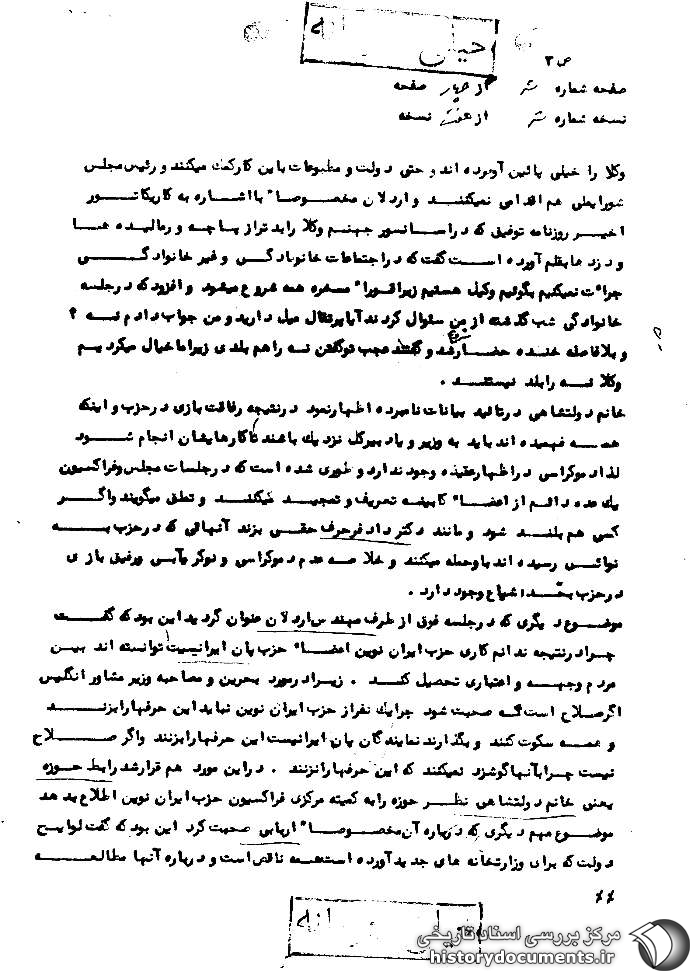 خیلی
ص ۳
صفحه شماره از چهار صفحه
نسخه شماره از هفت نسخه
وکلا را خیلی پائین آورده اند و حتی دولت و مطبوعات باین کار کمک میکنند و رئیس مجلس
شورایملی هم اقدامی نمیکند و اردلان مخصوصاً با اشاره به کاریکاتور
اخیر روزنامه توفیق که در آسانسور جهنم وکلا را بدتر از پاچه ورمالیده ها
و دزد ها بقلم آورده است گفت که در اجتماعات خانوادگی و غیر خانوادگی
جرأت نمیکنیم بگوئیم وکیل هستیم زیرا فوراً مسخره همه شروع میشود و افزود که در جلسه
خانوادگی شب گذشته از من سئوال کردند آیا پرتقال میل دارید و من جواب دادم نه ؟
و بلافاصله خنده حضار شروع شد و گفتند عجب تو گفتن نه را هم بلدی زیرا ما خیال میکردیم
وکلا نه را بلد نیستند .
خانم دولتشاهی در تائید بیانات نامبرده اظهار نمود در نتیجه رفاقت بازی در حزب و اینکه
همه فهمیده اند باید به وزیر و یا دبیرکل نزدیک باشند تا کارهایشان انجام شود
لذا دموکراسی در اظهار عقیده وجود ندارد و طوری شده است که در جلسات مجلس و فراکسیون
یک عده دائم از اعضاً کابینه تعریف و تمجید میکنند و تملق میگویند و اگر
کسی هم بلند شود و مانند دکتر دادفر حرف حقی بزند آنهائی که در حزب به
نوائی رسیده اند باو حمله میکنند و خلاصه عدم دموکراسی و نوکر مآبی و رفیق بازی
در حزب بحد اشباع وجود دارد .
موضوع دیگری که در جلسه فوق از طرف مهندس اردلان عنوان گردید این بود که گفت
چرا در نتیجه ندانم کاری حزب ایران نوین اعضاً حزب پان ایرانیست توانسته اند بین
مردم وجهه و اعتباری تحصیل کنند . زیرا در مورد بحرین و مصاحبه وزیر مشاور انگلیس
اگر صلاح است که صحبت شود چرا یک نفر از حزب ایران نوین نباید این حرفها را بزند
و همه سکوت کنند و بگذارند نمایندگان پان ایرانیست این حرفها را بزنند و اگر صلاح
نیست چرا بآنها گوشزد نمیکنند که این حرفها را نزنند . در این مورد هم قرار شد رابط حوزه
یعنی خانم دولتشاهی نظر حوزه را به کمیته مرکزی فراکسیون حزب ایران نوین اطلاع بدهد
موضوع مهم دیگری که درباره آن مخصوصاً اربابی صحبت کرد این بود که گفت لوایح
دولت که برای وزارتخانه های جدید آورده است همه ناقص است و درباره آنها مطالعه
مرکز بررسی اسناد تاریخی
historydocuments.ir